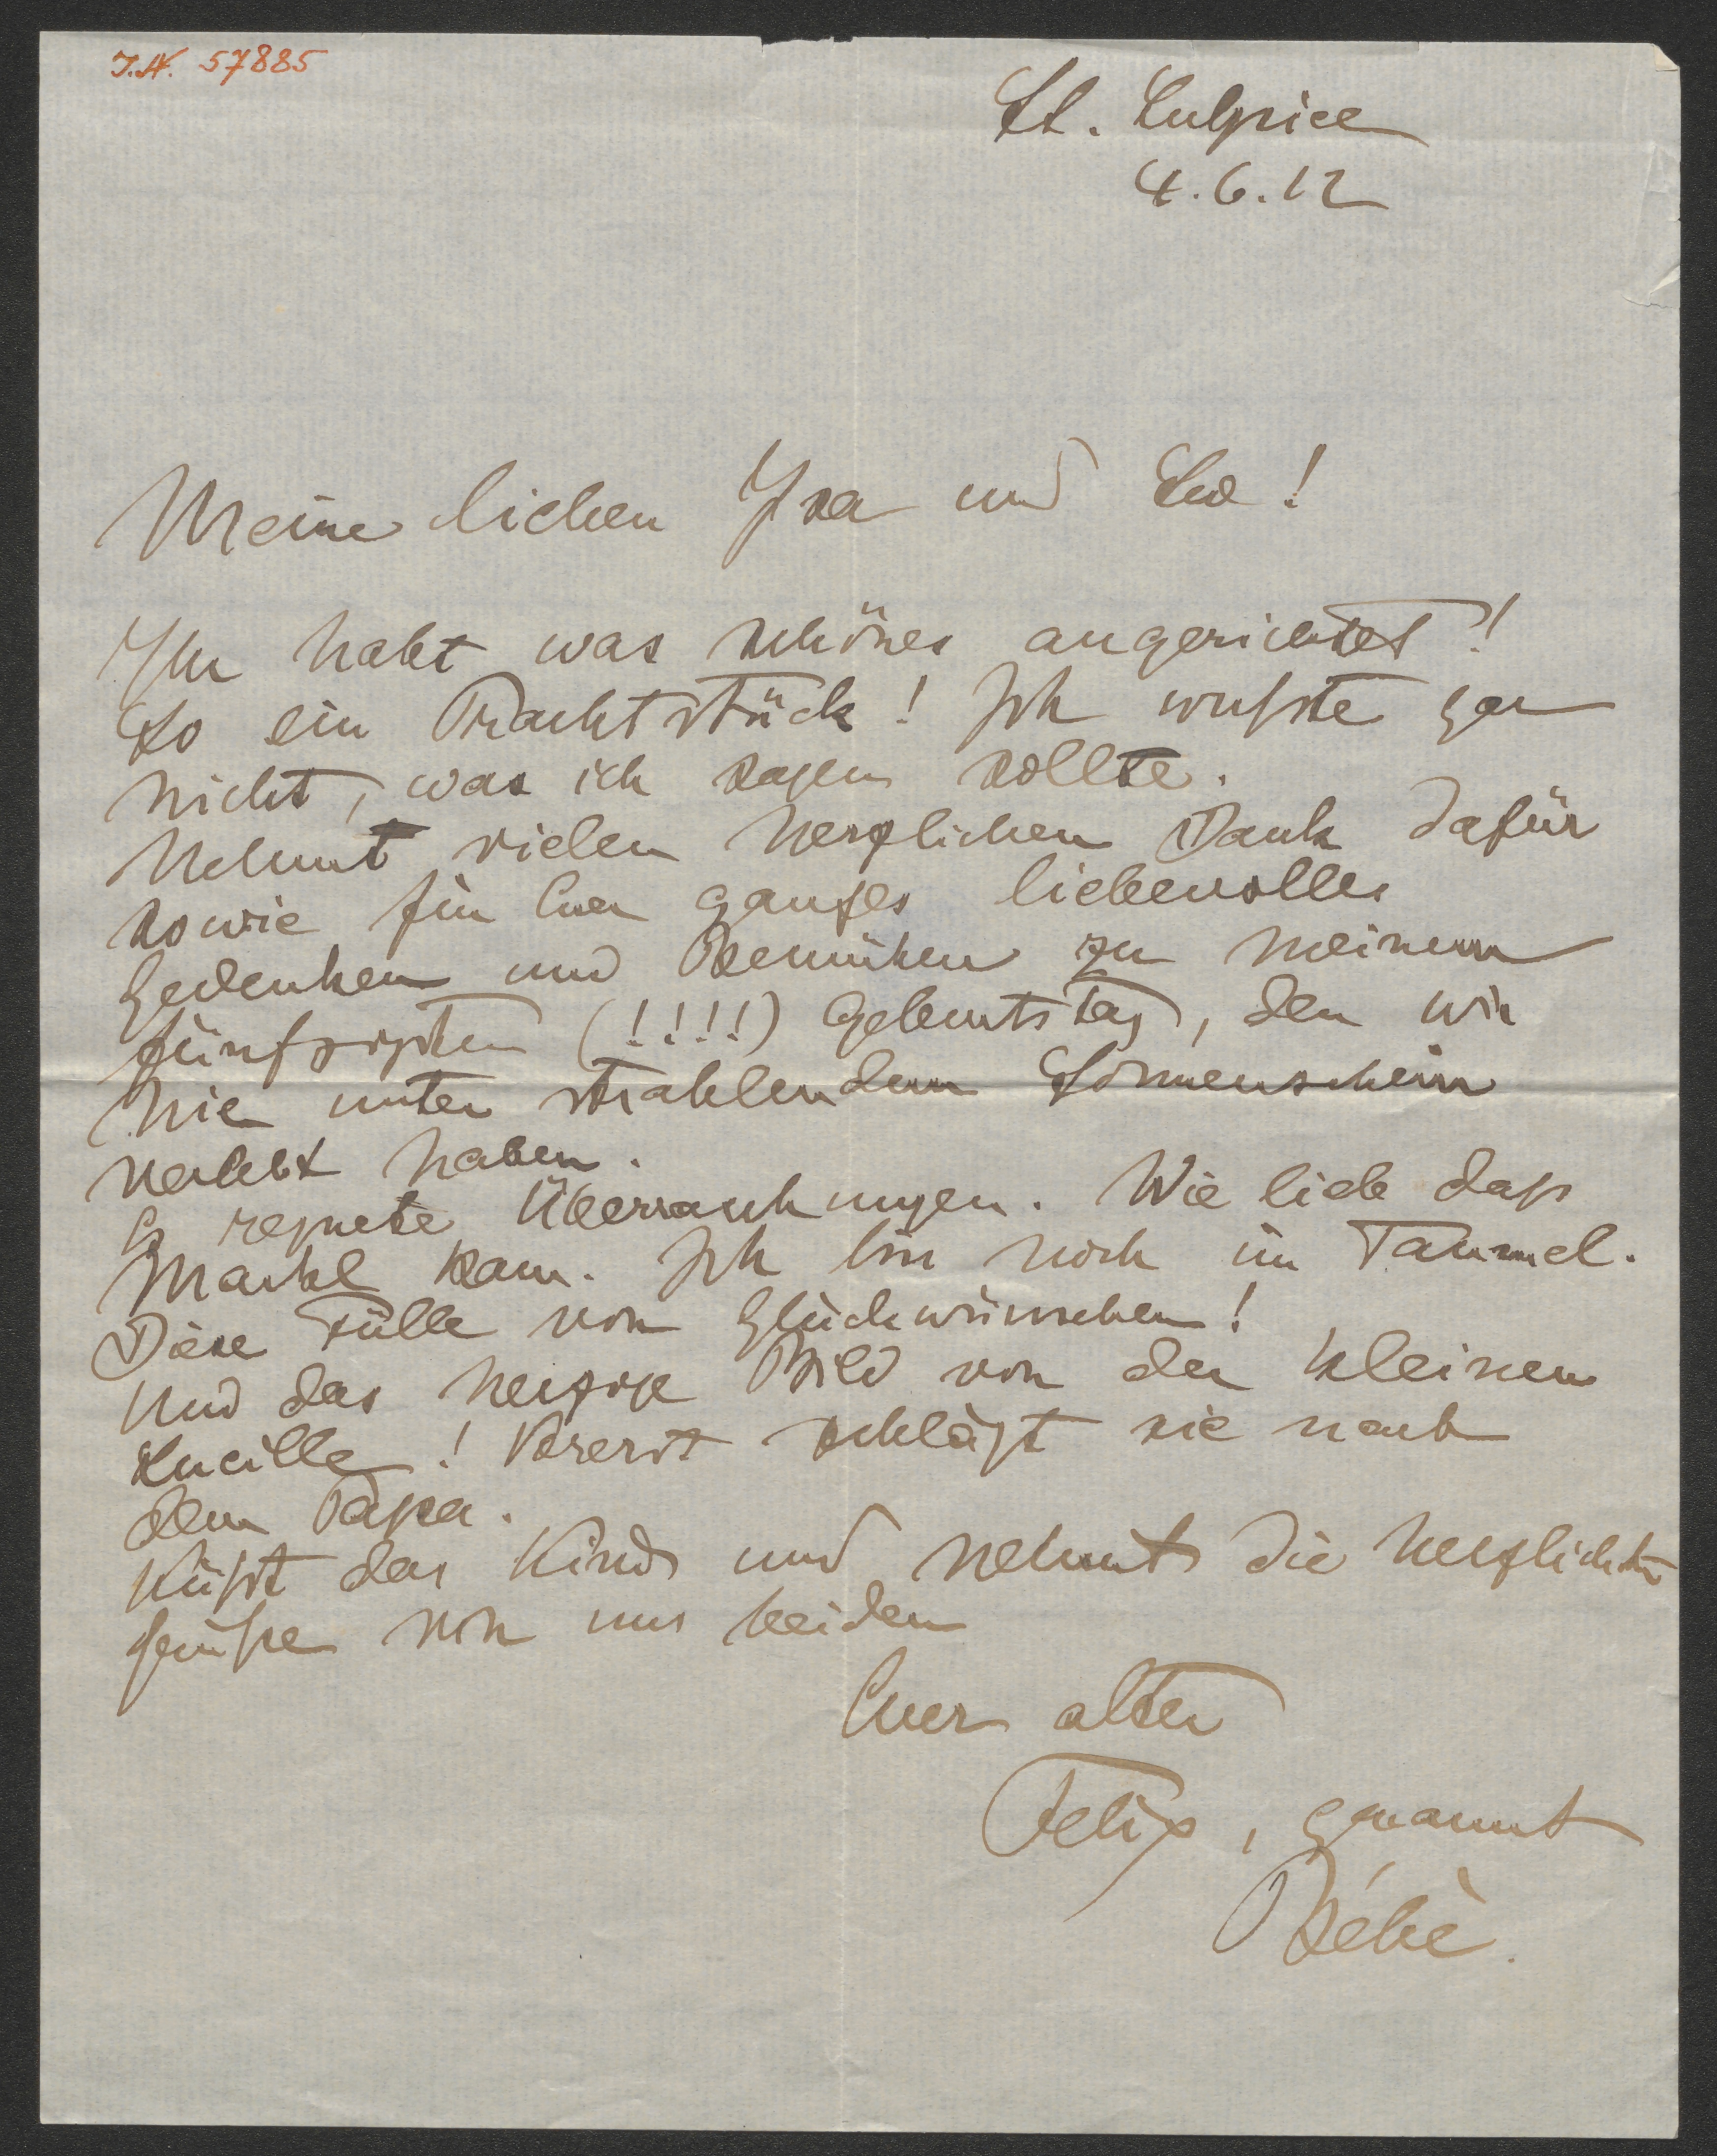 J.N. 57885
St. Sulpice
4.6.12
Meine lieben Isa und Edo!
Ihr habt was schönes angerichtet!
So ein Prachtstück! Ich wußte gar
nicht, was ich sagen sollte.
Nehmt vielen herzlichen Dank dafür
sowie für Euer ganzes liebevolles
Gedenken und Bemühen zu meinem
fünfzigsten (!!!!) Geburtstag, den wir
hier unter strahlendem Sonnenschein
verlebt haben.
Es regnete Überraschungen. Wie lieb daß
kam. Ich bin noch im Taumel.
Diese Fülle von Glückwünschen!
Und das herzige Bild von der kleinen
Lucille! Vorerst schlägt sie nach
dem Papa.
Küßt das Kind und nehmt die herzlichsten
Grüße von uns beiden
Euer alter
Felix, genannt
Bébè.